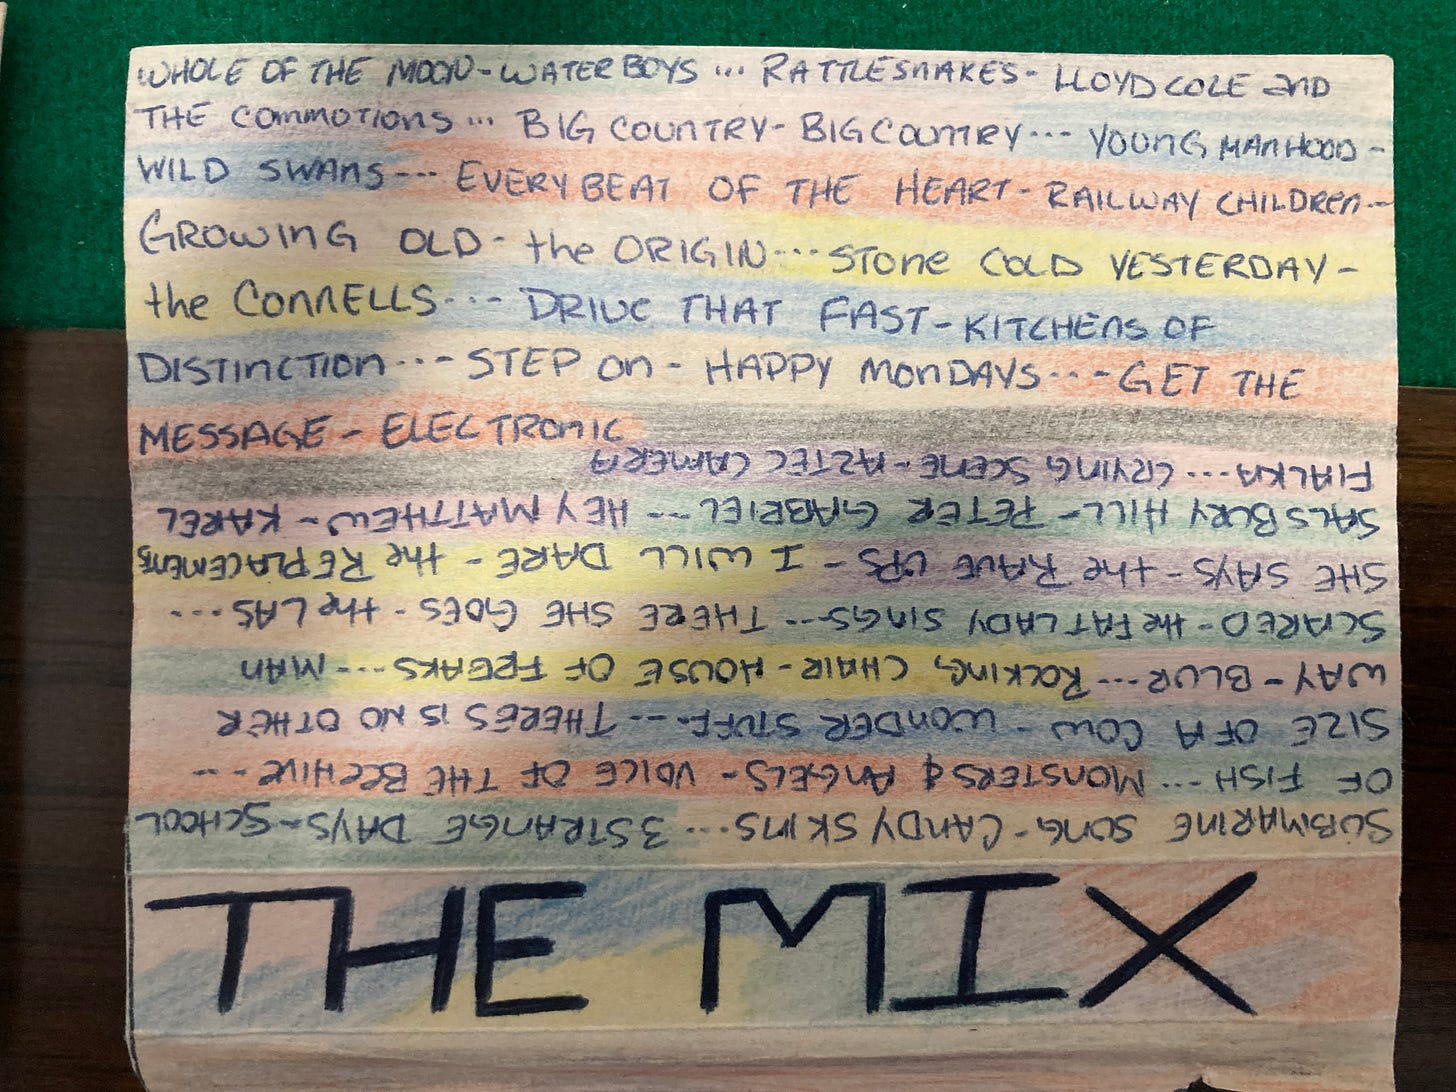 WHOLE OF THE MOON - WATERBOYS ... RATTLESNAKES - LLOYD COLE and
THE COMMOTIONS ... BIG COUNTRY - BIG COUNTRY --- YOUNG MANHOOD -
WILD SWANS --- EVERY BEAT OF THE HEART - RAILWAY CHILDREN ---
GROWING OLD - the ORIGIN --- STONE COLD YESTERDAY -
the CONNELLS --- DRIVE THAT FAST - KITCHENS OF
DISTINCTION --- STEP ON - HAPPY MONDAYS --- GET THE
MESSAGE - ELECTRONIC
SUBMARINE SONG - CANDY SKINS ... 3 STRANGE DAYS - SCHOOL
OF FISH ... MONSTERS & ANGELS - VOICE OF THE BEEHIVE ---
SIZE OF A COW - WONDER STUFF --- THERES IS NO OTHER
WAY - BLUR --- ROCKING CHAIR - HOUSE OF FREAKS --- MAN
SCARED - the FAT LADY SINGS --- THERE SHE GOES - the LAS ---
SHE SAYS - the RAVE UPS - I WILL DARE - the REPLACEMENTS
SALSBURY HILL - PETER GABRIEL --- HEY MATTHEW - KAREL
FIALKA --- CRYING SCENE - AZTEC CAMERA
THE MIX